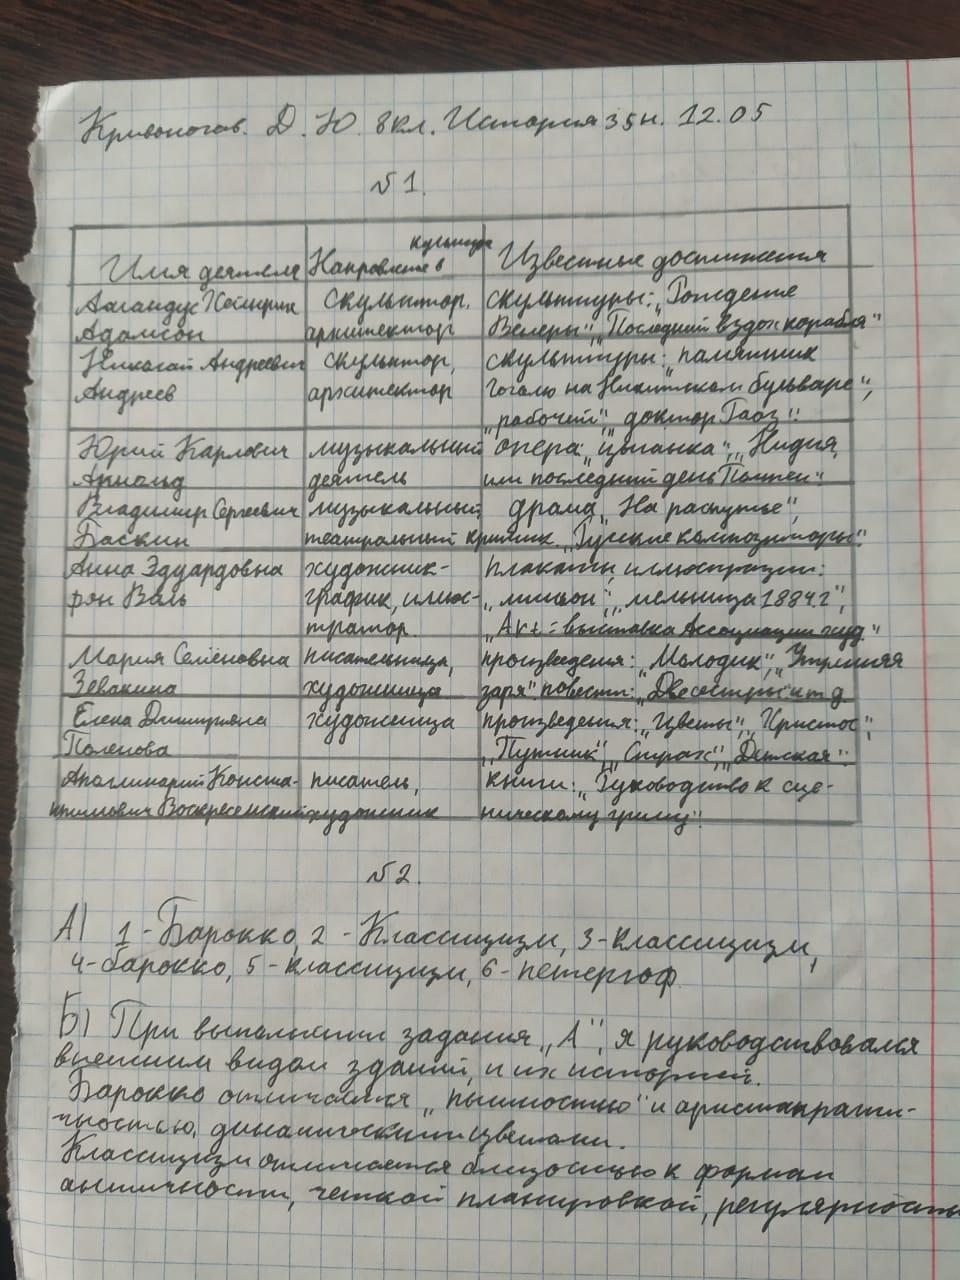 Кривоногов. Д. Ю. 8кл. История 35н. 12.05
№1.
Имя деятеля Направление в культуре Известные достижения
Амандус Хейнрих скульптор, скульптуры: „Рождение
Адамсон архитектор Венеры", „Последний вздох корабля"
Николай Андреевич скульптор, скульптуры: „памятник
Андреев архитектор Гоголю на Никитском бульваре",
„рабочей", доктор Гааз".
Юрий Карлович музыкальный опера: „цыганка", „Нидия,
Арнольд деятель или последний день Помпеи".
Владимир Сергеевич музыкальный, драма „На распутье",
Баскин театральный критик. „Русские композиторы".
Анна Эдуардовна художник- плакаты, иллюстрации:
фон Валь график, иллюс- „мишой", „мельница 1884г",
тратор. „Art = выставка Ассоциации худ."
Мария Семёновна писательница, произведения: „Молодик", „Утренняя
Зевакина художница заря" повести: „Две сестры" и т д
Елена Дмитриевна художница произведения: „Цветы", „Христос",
Поленова „Путник", „Страх", „Детская".
Аполлинарий Конста- писатель, книги: „Руководство к сце-
нтинович Воскресенский художник ническому гриму".
№2.
А) 1 - Барокко, 2 - Классицизм, 3 - классицизм,
4 - барокко, 5 - классицизм, 6 - петергоф.
Б) При выполнении задания „А", я руководствовался
внешним видом зданий, и их историей.
Барокко отличается „пышностью" и аристократи-
чностью, динамическими цветами.
Классицизм отличается близостью к формам
античности, четкой планировкой, регулярностью